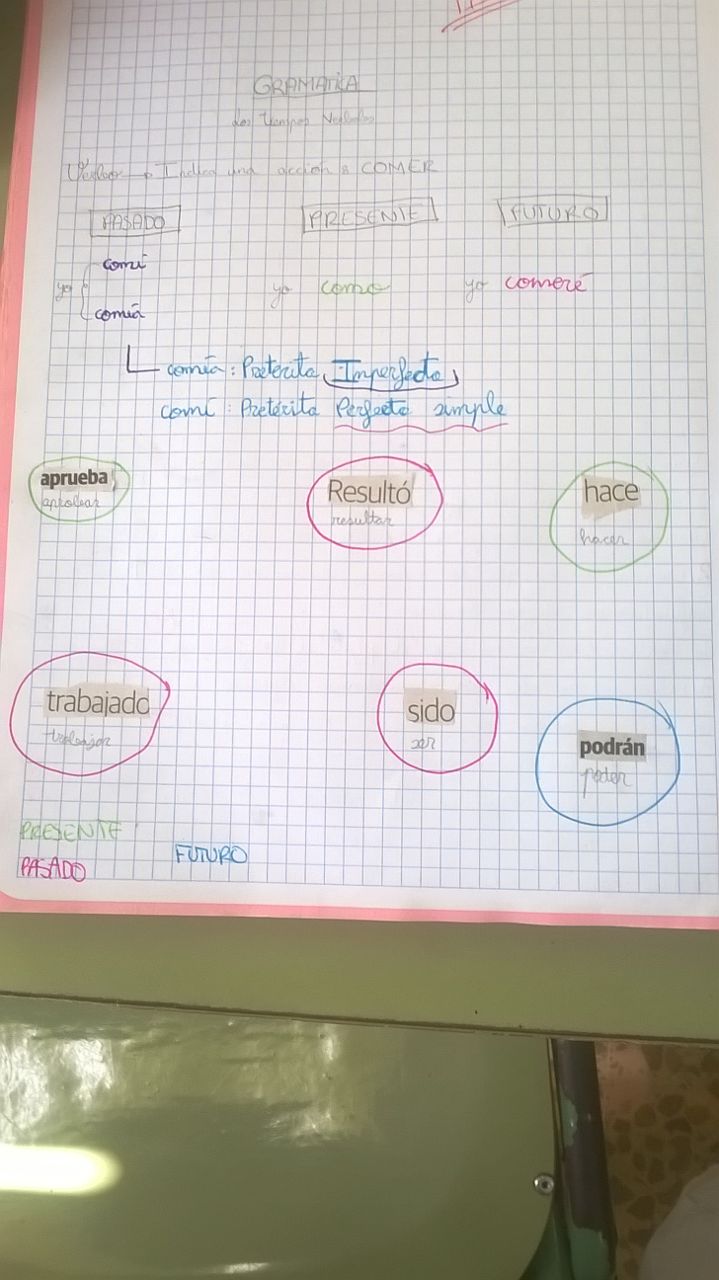 GRAMATICA
Los tiempos Verbales
Verbo → Indica una acción COMER
PASADO PRESENTE FUTURO
yo comí
comía
yo como yo comeré
comía: Pretérito Imperfecto
comí: Pretérito Perfecto simple
aprueba Resultó hace
aprobar resultar hacer
trabajado sido podrán
trabajar ser poder
PRESENTE
PASADO FUTURO